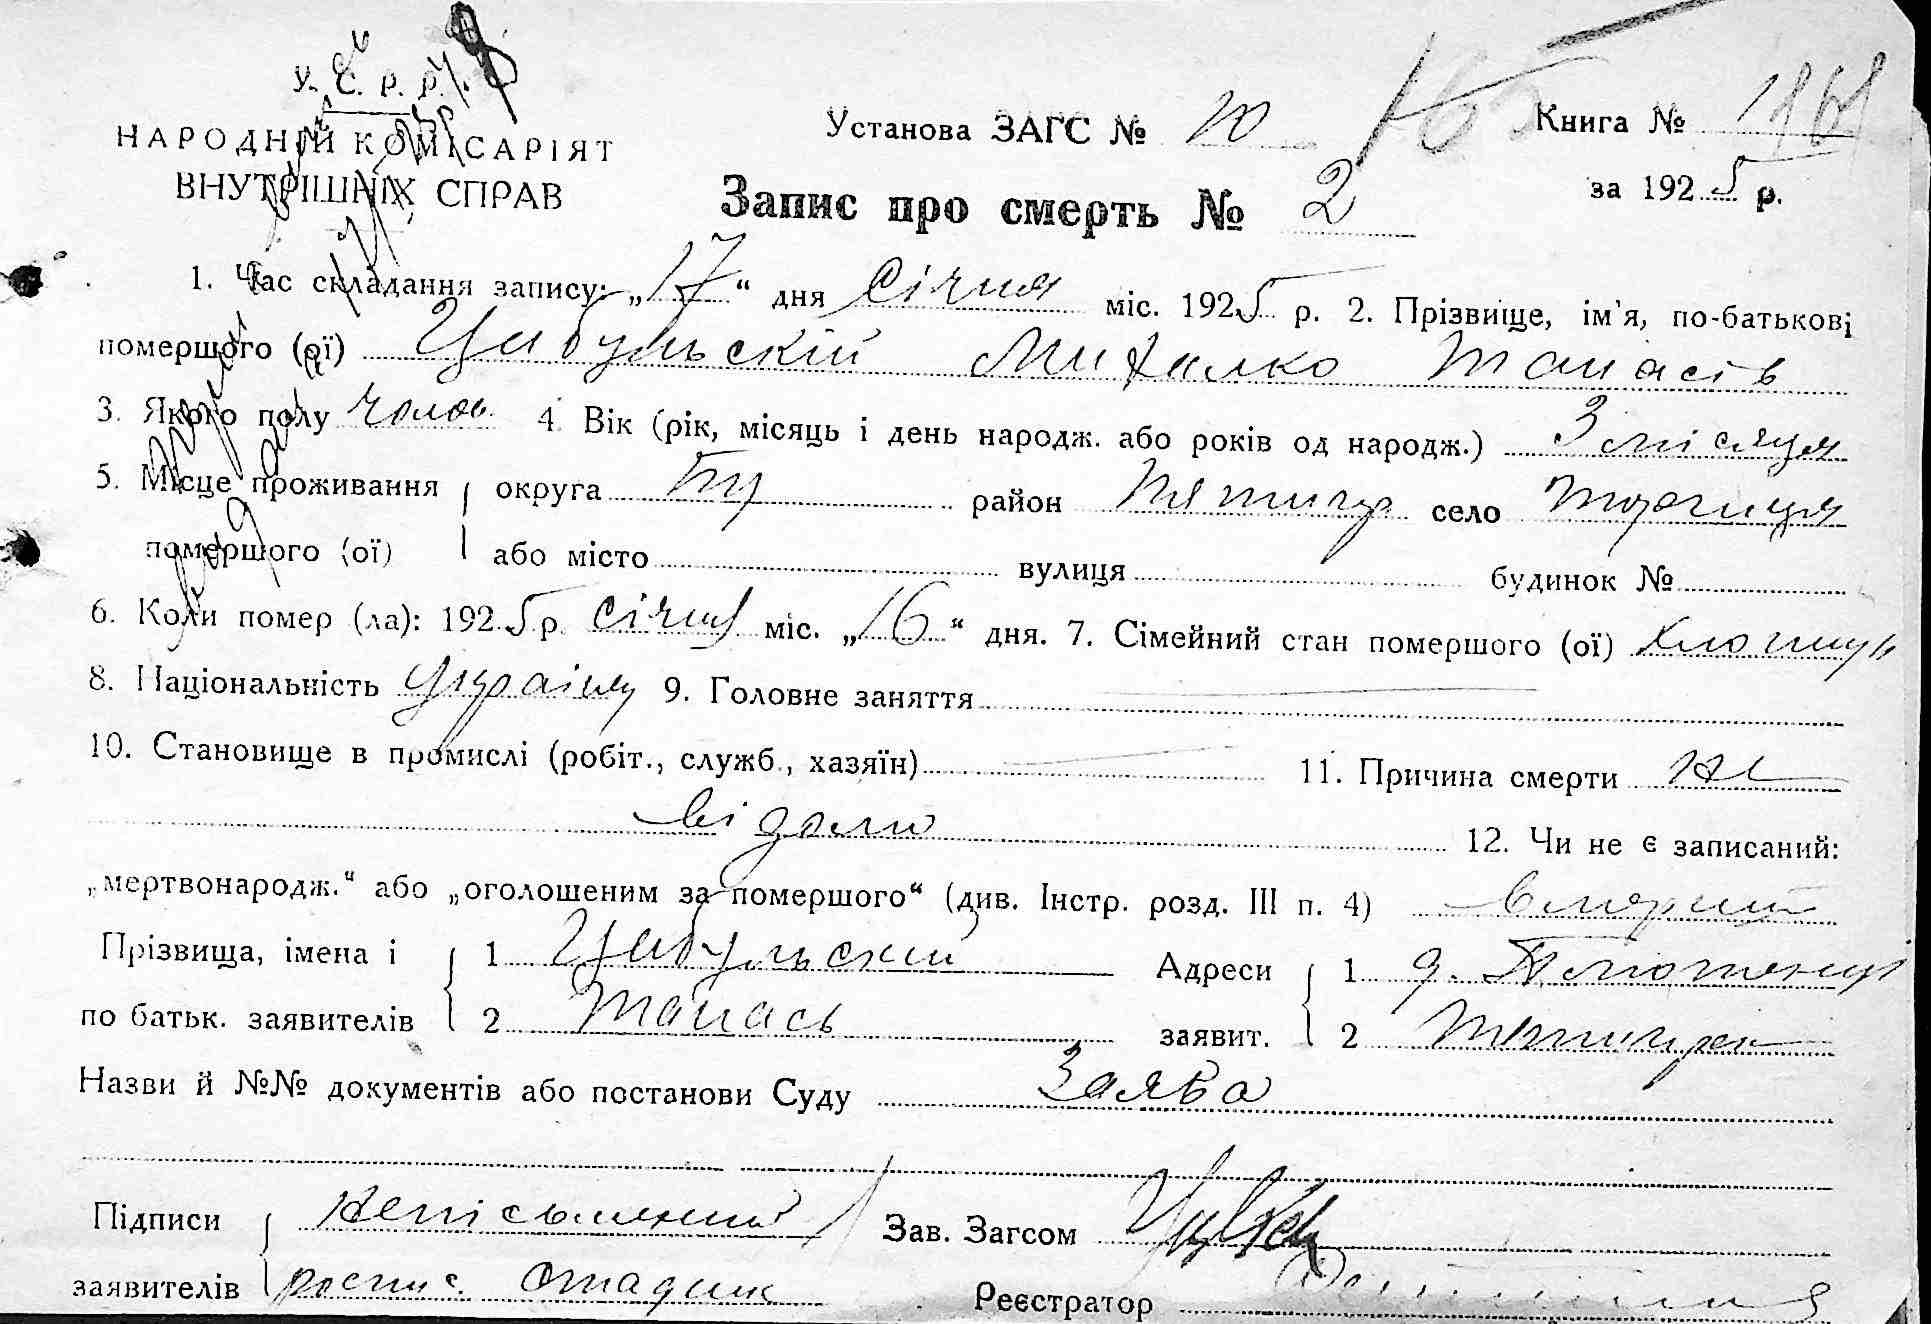 У. С. Р. Р.
НАРОДНІЙ КОМІСАРІЯТ
ВНУТРІШНІХ СПРАВ
Установа ЗАГС № 20
Книга №
за 1925 р.
Запис про смерть № 2
1. Час складання запису: „17“ дня Січня міс. 1925 р. 2. Прізвище, ім'я, по-батькові
помершого (ої) Цибульскій Михалко Танасів
3. Якого полу чолов. 4. Вік (рік, місяць і день народж. або років од народж.) 3 місяця
5. Місце проживання округа район село
помершого (ої) або місто вулиця будинок №
6. Коли помер (ла): 1925 р. Січня міс. „16“ дня. 7. Сімейний стан помершого (ої)
8. Національність 9. Головне заняття
10. Становище в промислі (робіт., служб., хазяїн) 11. Причина смерти не
відомо
12. Чи не є записаний:
„мертвонародж.“ або „оголошеним за помершого“ (див. Інстр. розд. III п. 4)
Прізвища, імена і 1 Цибульский Адреси 1
по батьк. заявителів 2 Танась заявит. 2
Назви й №№ документів або постанови Суду Заява
Підписи неписьменный Зав. Загсом
заявителів роспис. Реєстратор